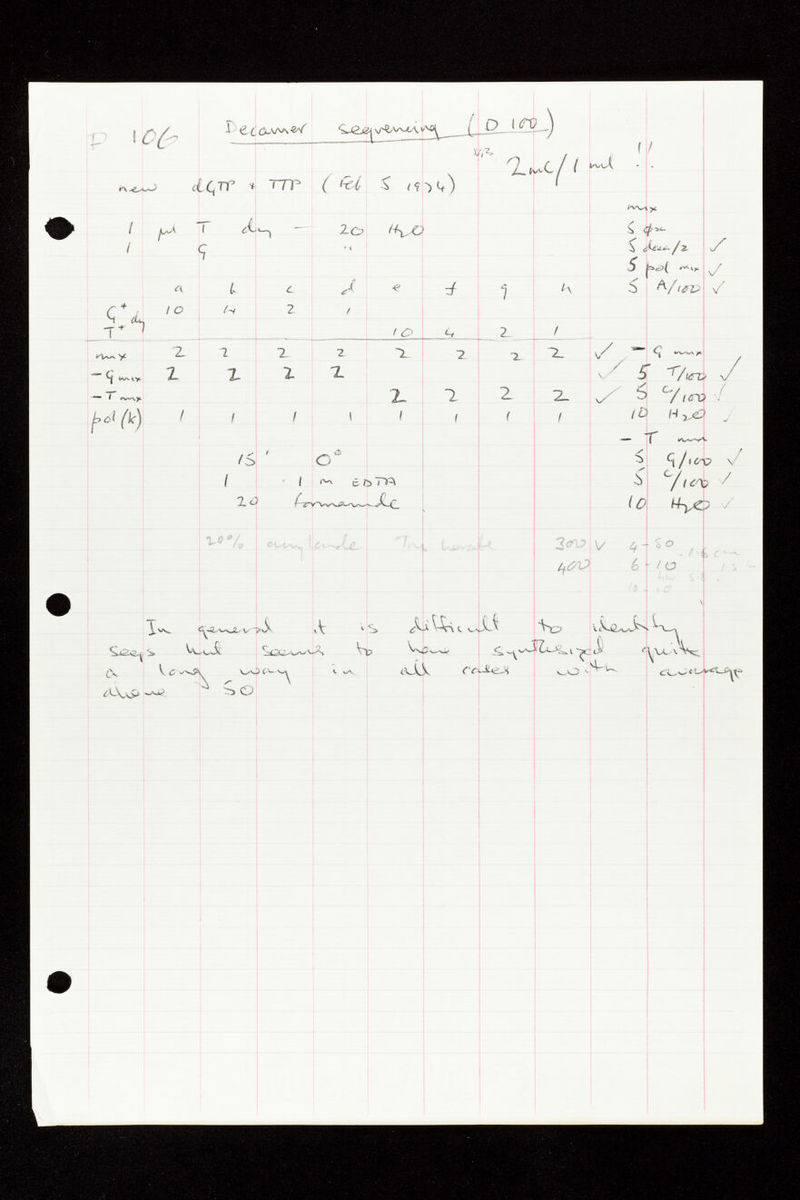 D 106 Decamer sequencing (D 100)
new dGTP + TTP (Feb 5 1974) 2 mC/1 ml !!
mix
1 µl T dry — 20 H2O 5 φx
1 G " 5 deca/2 ✓
5 pol mix ✓
a b c d e f g h 5 A/100 ✓
G+ dry 10 4 2 1
T+ 10 4 2 1
mix 2 2 2 2 2 2 2 2 ✓ - G mix
- G mix 2 2 2 2 ✓ 5 T/100 ✓
- T mix 2 2 2 2 ✓ 5 C/100 ✓
pol (k) 1 1 1 1 1 1 1 1 10 H2O ✓
- T mix
15' 0° 5 G/100 ✓
1 .1 M EDTA 5 C/100 ✓
20 formamide 10 H2O ✓
20% acrylamide Tris borate 300 V 4-50
400 6-10
10-10
In general it is difficult to identify
seqs but seems to have synthesized quite
a long way in all cases with average
above 50